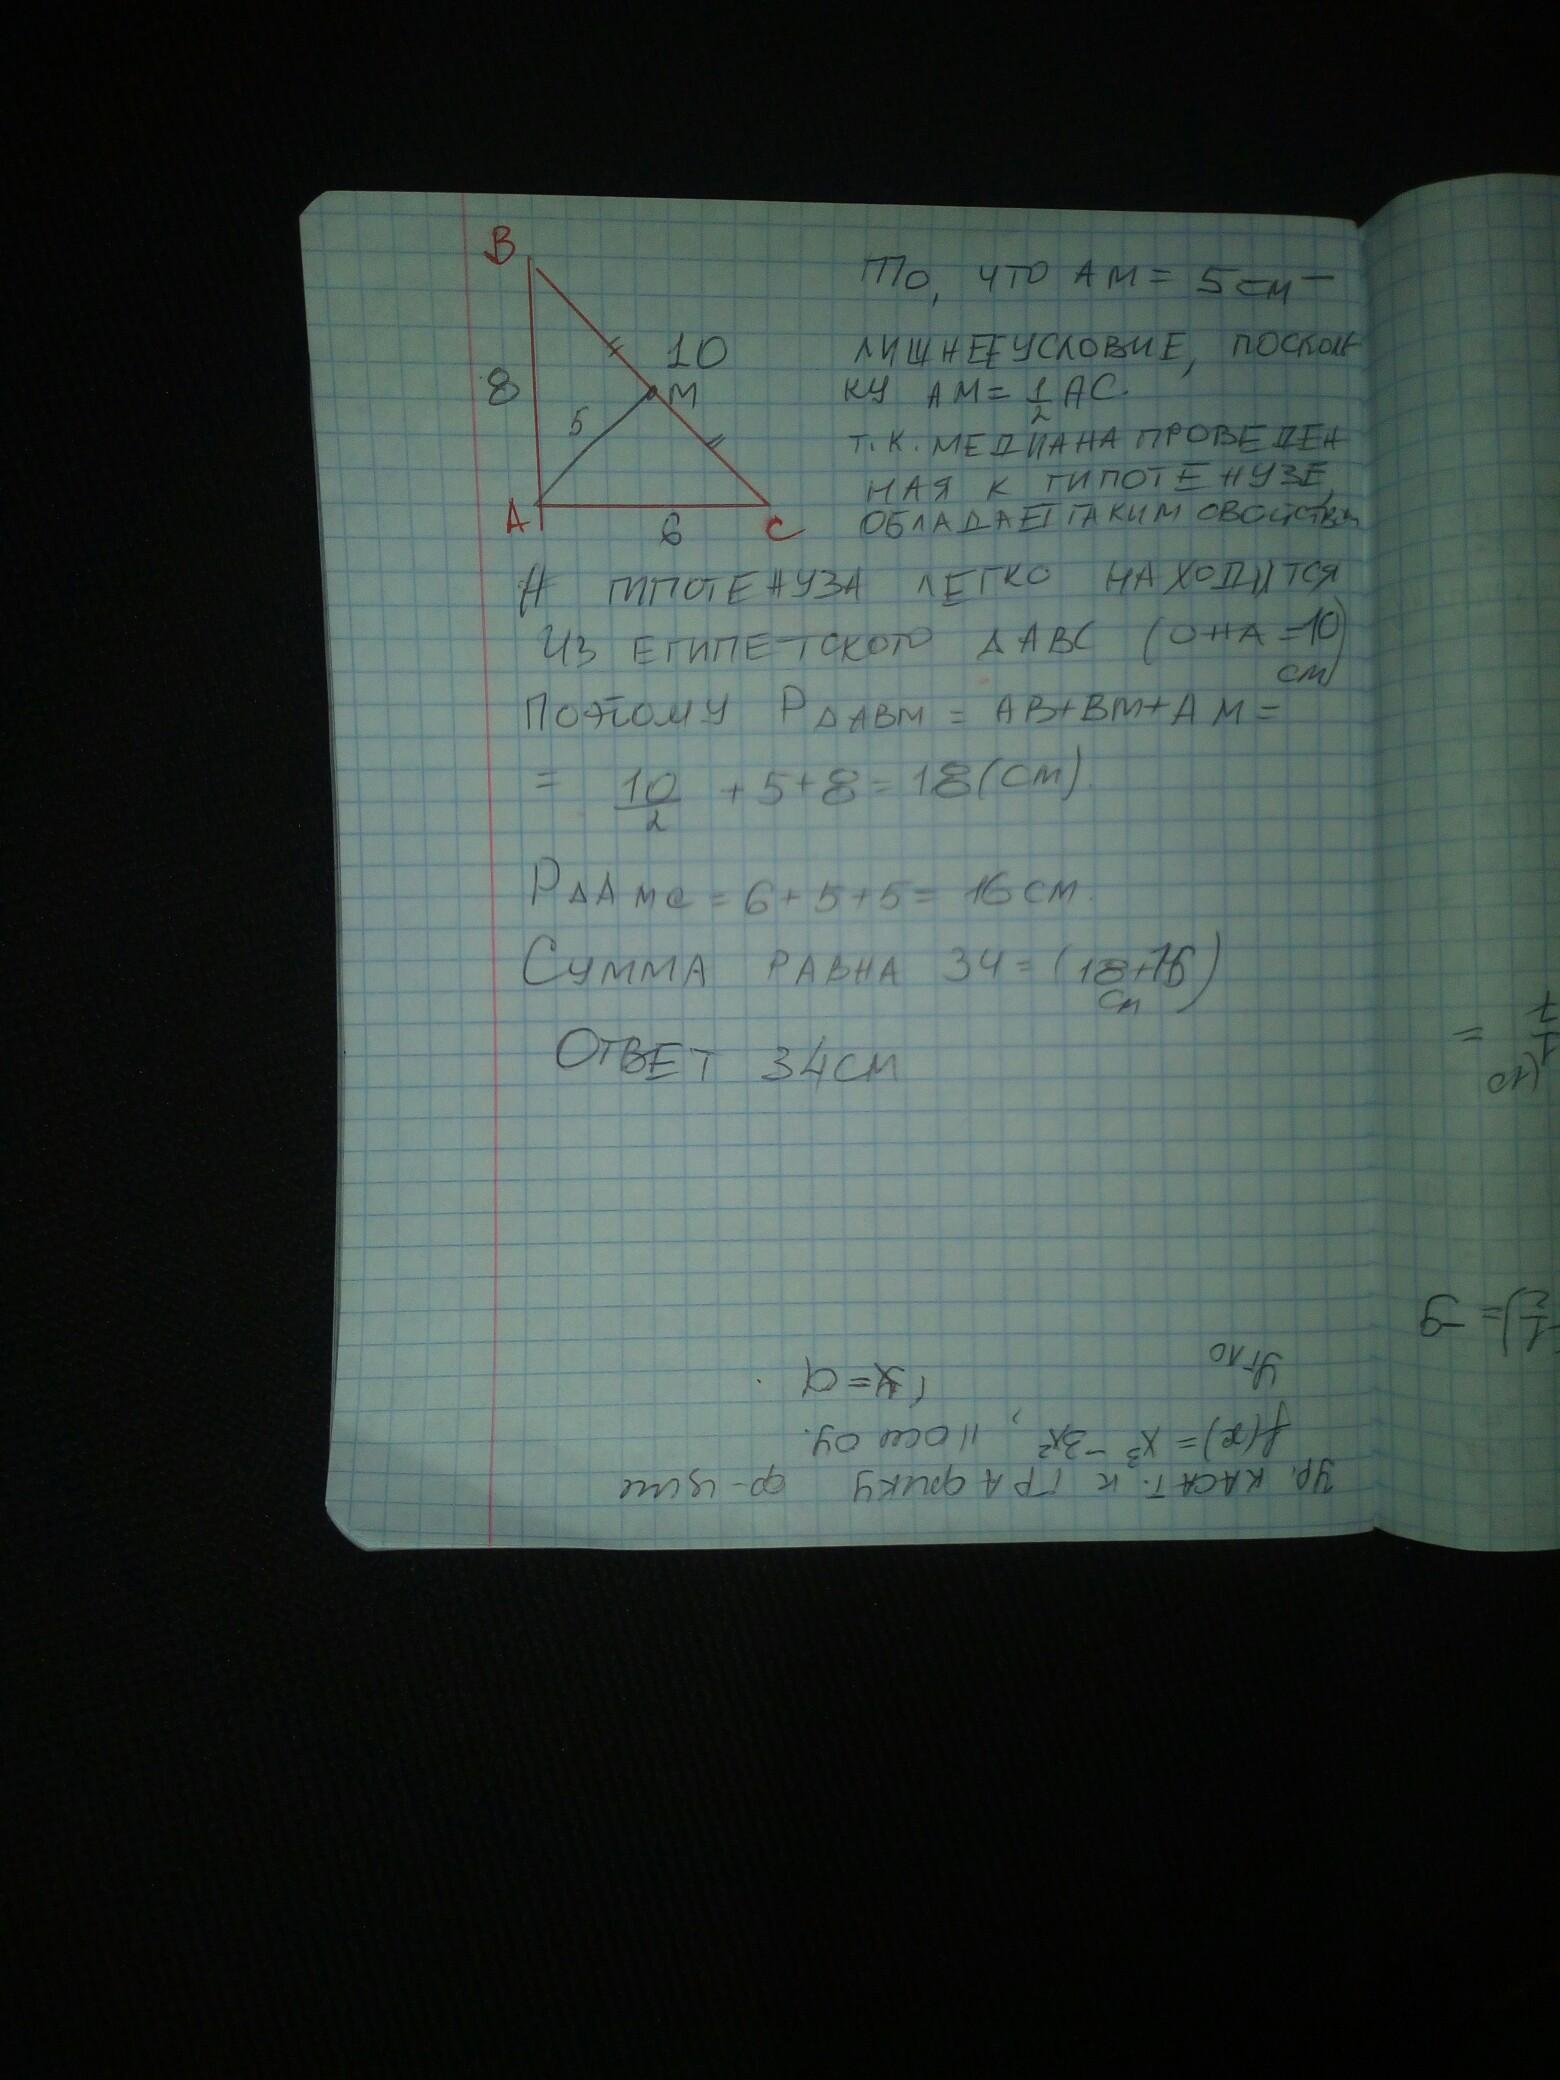 B
8
10
M
5
A
6
C
То, что AM = 5 см –
лишнее условие, посколь
ку AM = 1/2 AC.
т.к. медиана проведен
ная к гипотенузе,
обладает таким свойством
А гипотенуза легко находится
из египетского Δ ABC (она = 10 см)
Поэтому P Δ ABM = AB + BM + AM =
= 10/2 + 5 + 8 = 18 (см).
P Δ AMC = 6 + 5 + 5 = 16 см.
Сумма равна 34 = (18+16) см
Ответ 34 см
Ур. касат. к графику ф-ции
f(x) = x³ – 3x², || оси oy.
= -9